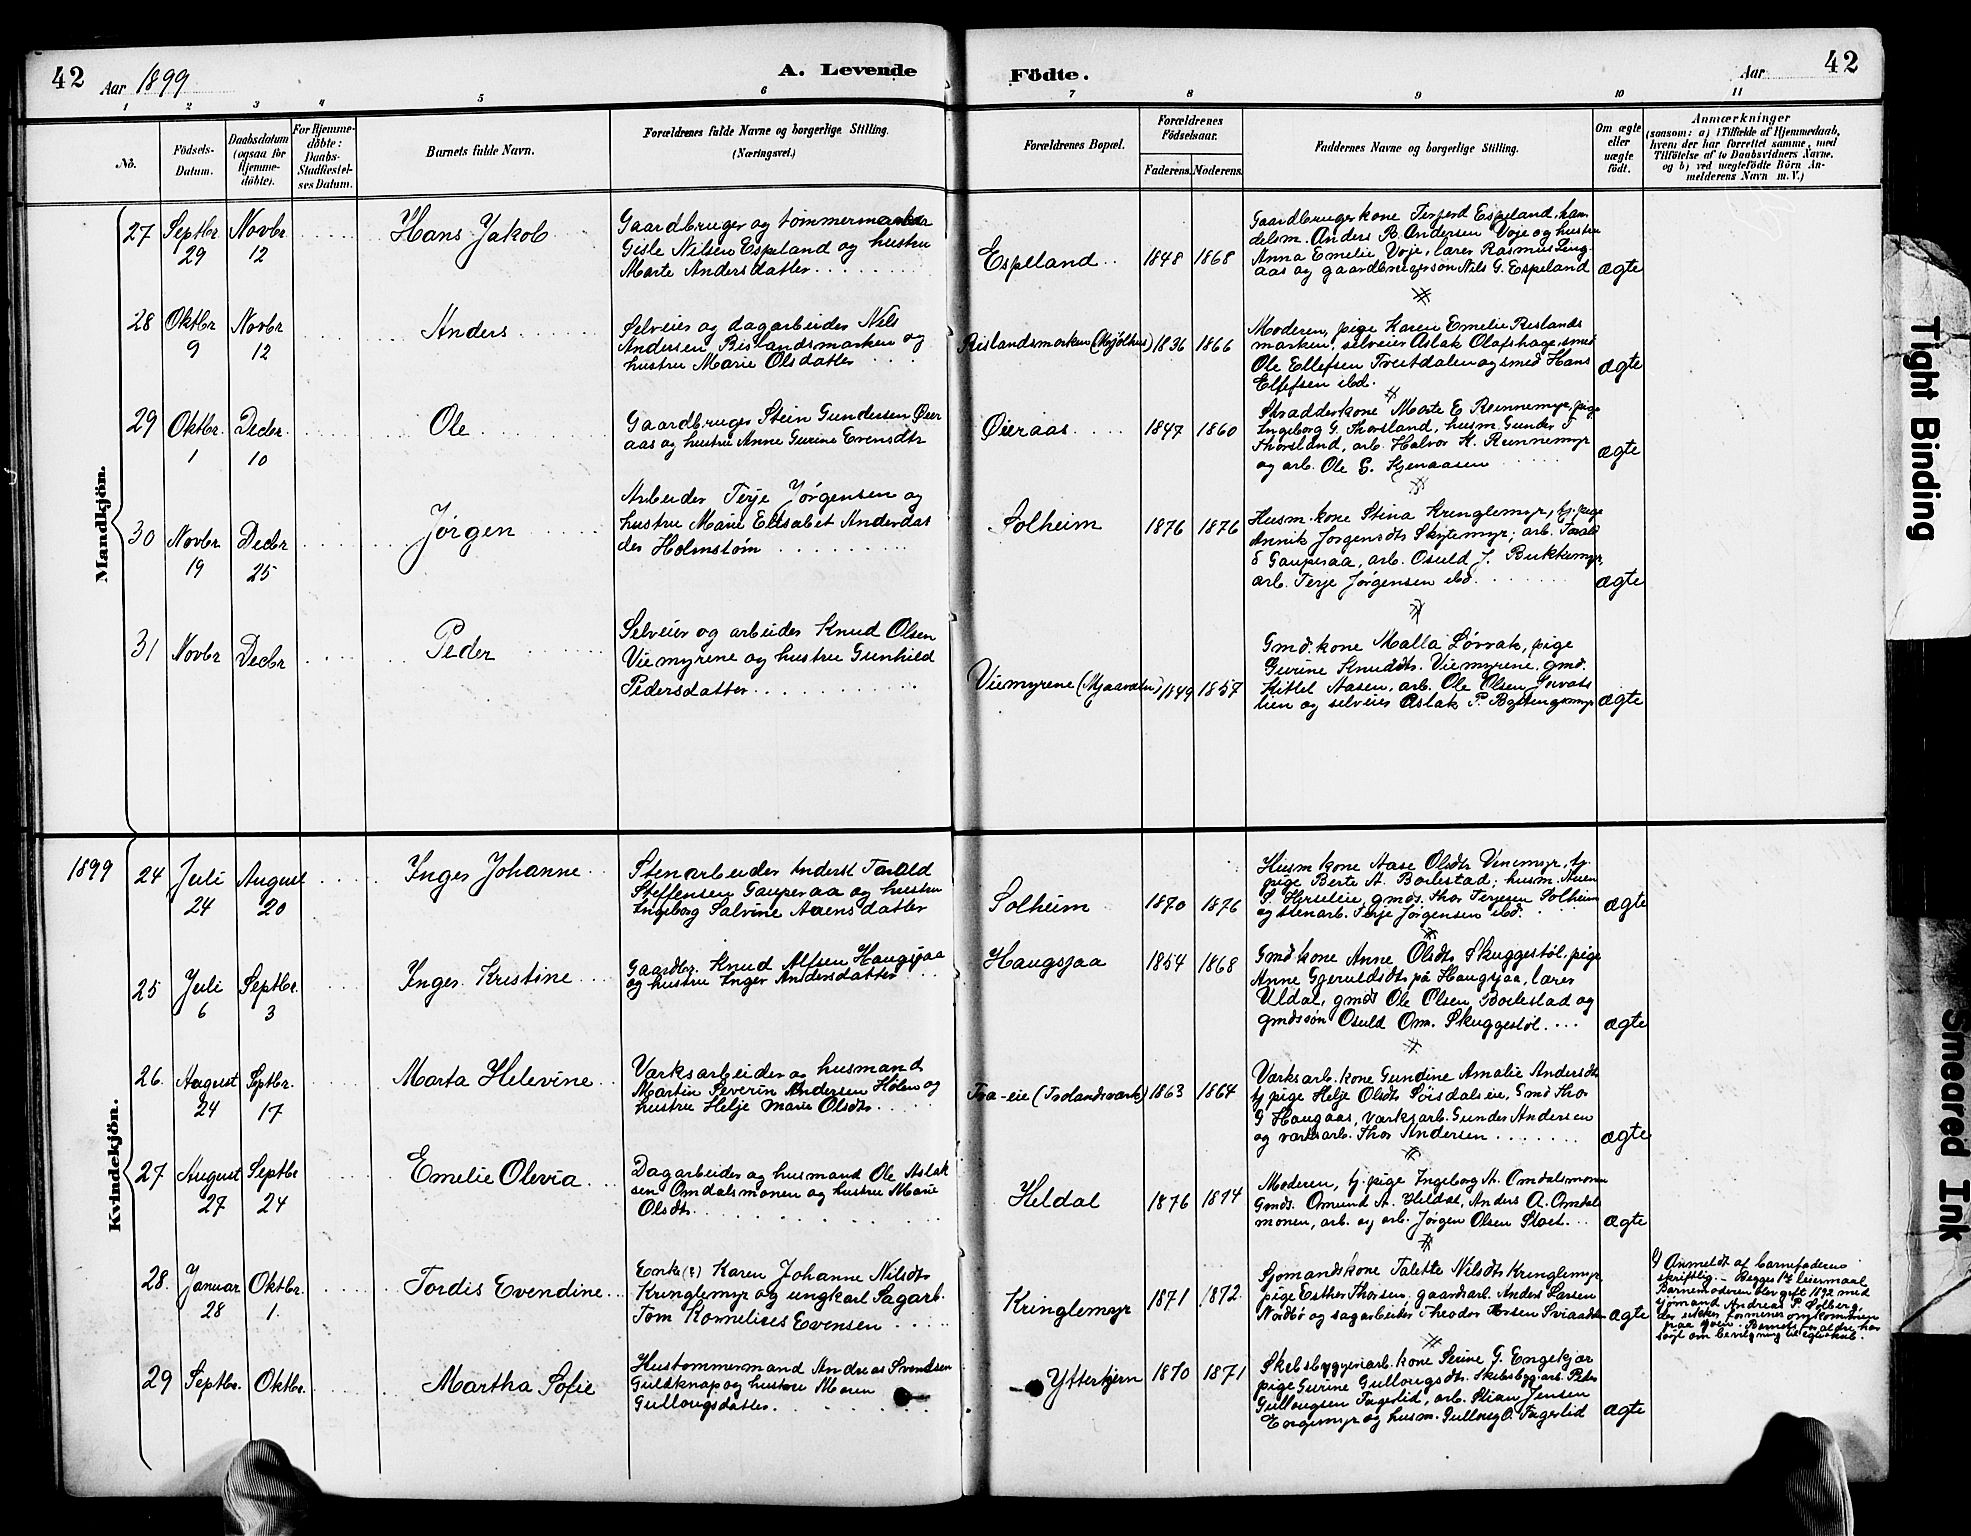 42 Aar 1899 A. Levende
Födte. Aar 42
1 2 3 4 5 6 7 8 9 10 11
No.
Födsels-Datum.
Daabsdatum (ogsaa for Hjemme-döbte).
For Hjemme-döbte: Daabs-Stadfæstel-ses Datum.
Barnets fulde Navn.
Forældrenes fulde Navne og borgerlige Stilling.
(Næringsvei.)
Forældrenes Bopæl.
Forældrenes Födselsaar.
Faderens. Moderens.
Faddernes Navne og borgerlige Stilling.
Om ægte eller uægte födt.
Anmærkninger
(saasom: a) i Tilfælde af Hjemmedaab,
hvem der har forrettet samme, med
Tilföielse af to Daabsvidners Navne,
og b) ved uægtefödte Börn An-
melderens Navn m. V.)
Mandkjön.
27 Septbr 29 Novbr 12 Hans Jakob
Gaardbruger og tømmermand
Gisle Nilsen Espeland og hustru
Marte Andersdatter
Espeland 1848 1868
Gaardbrugerkone Terferd Espeland, han
delsm. Anders R. Andersen Voje og hustru
Anna Emelie Voje, lærer Rasmus Ling
aas og gaardbrugersøn Nils G. Espeland
ægte
28 Oktbr 9 Novbr 12 Anders
Selveier og dagarbeider Nils
Andersen Rislandsmarken og
hustru Marie Olsdatter
Rislandsmarken (Mjølhus) 1836 1866
Moderen, pige Karen Emelie Reslands
marken, selveier Aslak Olafshage, smed
Ole Ellefsen Tveitdalen og smed Hans
Ellefsen ibd.
ægte
29 Oktbr. 1 Decbr. 10 Ole
Gaardbruger Stein Gundersen Øier
aas og hustru Anne Gurine Evensdtr
Øieraas 1847 1860
Skradderkone Marte E Rennemyr, pige
Ingeborg G. Thorsland, husm. Gunder T
Thorsland, arb. Halvor K. Rennemyr
og arb. Ole G. Kjenaasen
ægte
30 Novbr 19 Decbr 25 Jørgen
Arbeider Terje Jørgensen og
hustru Marie Elisabet Andersdat
der Holmstøm
Solheim 1876 1876
Husm. kone Stina Kringlemyr, tj. pige
Annik Jorgensdts Skytemyr; arb. Tarald
S Gauperaa, arb. Osuld J. Buktemyr,
arb. Terje Jørgensen ibd.
ægte
31 Novbr Decbr Peder
Selveier og arbeider Knud Olsen
Viemyrene og hustru Gunhild
Pedersdatter
Viemyrene (Mjaavatn) 1849 1857
Gmd. kone Malla Lørvak, pige
Gurine Knudsdts. Viemyrene, gmd.
Kittel Aasen, arb. Ole Olsen
lien og selveier Aslak P.
ægte
Kvindekjön.
1899 24 Juli 24 August 20 Inger Johanne
Stenarbeider Anders Tarald
Steffensen Gauperaa og hustru
Ingeborg Salvine Aaensdatter
Solheim 1870 1876
Husm kone Aase Olsdts Vinemyr, tj.
pige Berte A. Borlestad; husm. Auen
S. Herseleie, gmds. Thor Terjesen Solheim
og stenarb. Terje Jørgensen ibd.
ægte
25 Juli 6 Septbr. 3 Inger Kristine
Gaardbr. Knud Alfsen Haugsjaa
og hustru Inger Andersdatter
Haugsjaa 1854 1868
Gmd kone Anne Olsdts Skuggestøl, pige
Anne Gjeruldsdts på Haugsjaa, lærer
Uldal, gmds Ole Olsen Borlestad og
gmdssøn Osuld Om. Skuggestøl
ægte
26. August 24 Septbr. 17 Marta Helevine
Værksarbeider og husmand
Martin Severin Andersen Holm og
hustru Helje Marie Olsdts
Fra-eie (Frolandsværk) 1863 1864
Værksarb. kone Gundine Amalie Andersdt
tj pige Helje Olsdts Sørsdalseie, Gmd Thor
G Haugaas, værksarb. Gunder Andersen
og værksarb. Thor Andersen
ægte
27 August 27 Septbr 24 Emelie Olevia
Dagarbeider og husmand Ole Aslak
sen Omdalsmonen og hustru Marie
Olsdts.
Heldal 1876 1874
Moderen, tj. pige Ingeborg A. Omdalsmonen
Gmds. Omund A. Heldal, Anders A. Omdals
monen, arb. og arb. Jørgen Olsen Sloet
ægte
28. Januar 28 Oktbr. 1. Tordis Evendine
Enke (?) Karen Johanne Nilsdts
Kringlemyr og ungkarl Sagarb.
Tom Kornelius Evensen
Kringlemyr 1871 1872
Sjomandskone Talette Nilsdts Kringlemyr,
pige Esther Thorsen, gaardsarb. Anders Larsen
Nordbø og sagarbeider Theodor Iversen Sviaadalen
ægte
Anmeldt af barnefaderen
skriftlig. – Begges 1ste leiermaal.
Barnemoderen blev gift 1892 med
sjømand Andreas P. Solberg,
der siden formenes omkommen
paa sjøen. Barnets foraldre har
søgt om bevilgning til egteskab.
29 Septbr. Oktbr. Martha Sofie
Hustommermand Andreas Svendsen
Guldsknap og hustru Maren
Gullougsdatter.
Ytterkjern 1870 1871
Skibsbyggeriarb. kone Serine G. Engekjær
pige Gurine Gullougsdts. Skibsbyg. arb. Peter
Gullougsen Fagerlid, arb. Stian Jensen
Engemyr og husm. Gulloug O. Fagerlid
ægte
Tight Binding
Smeared Ink